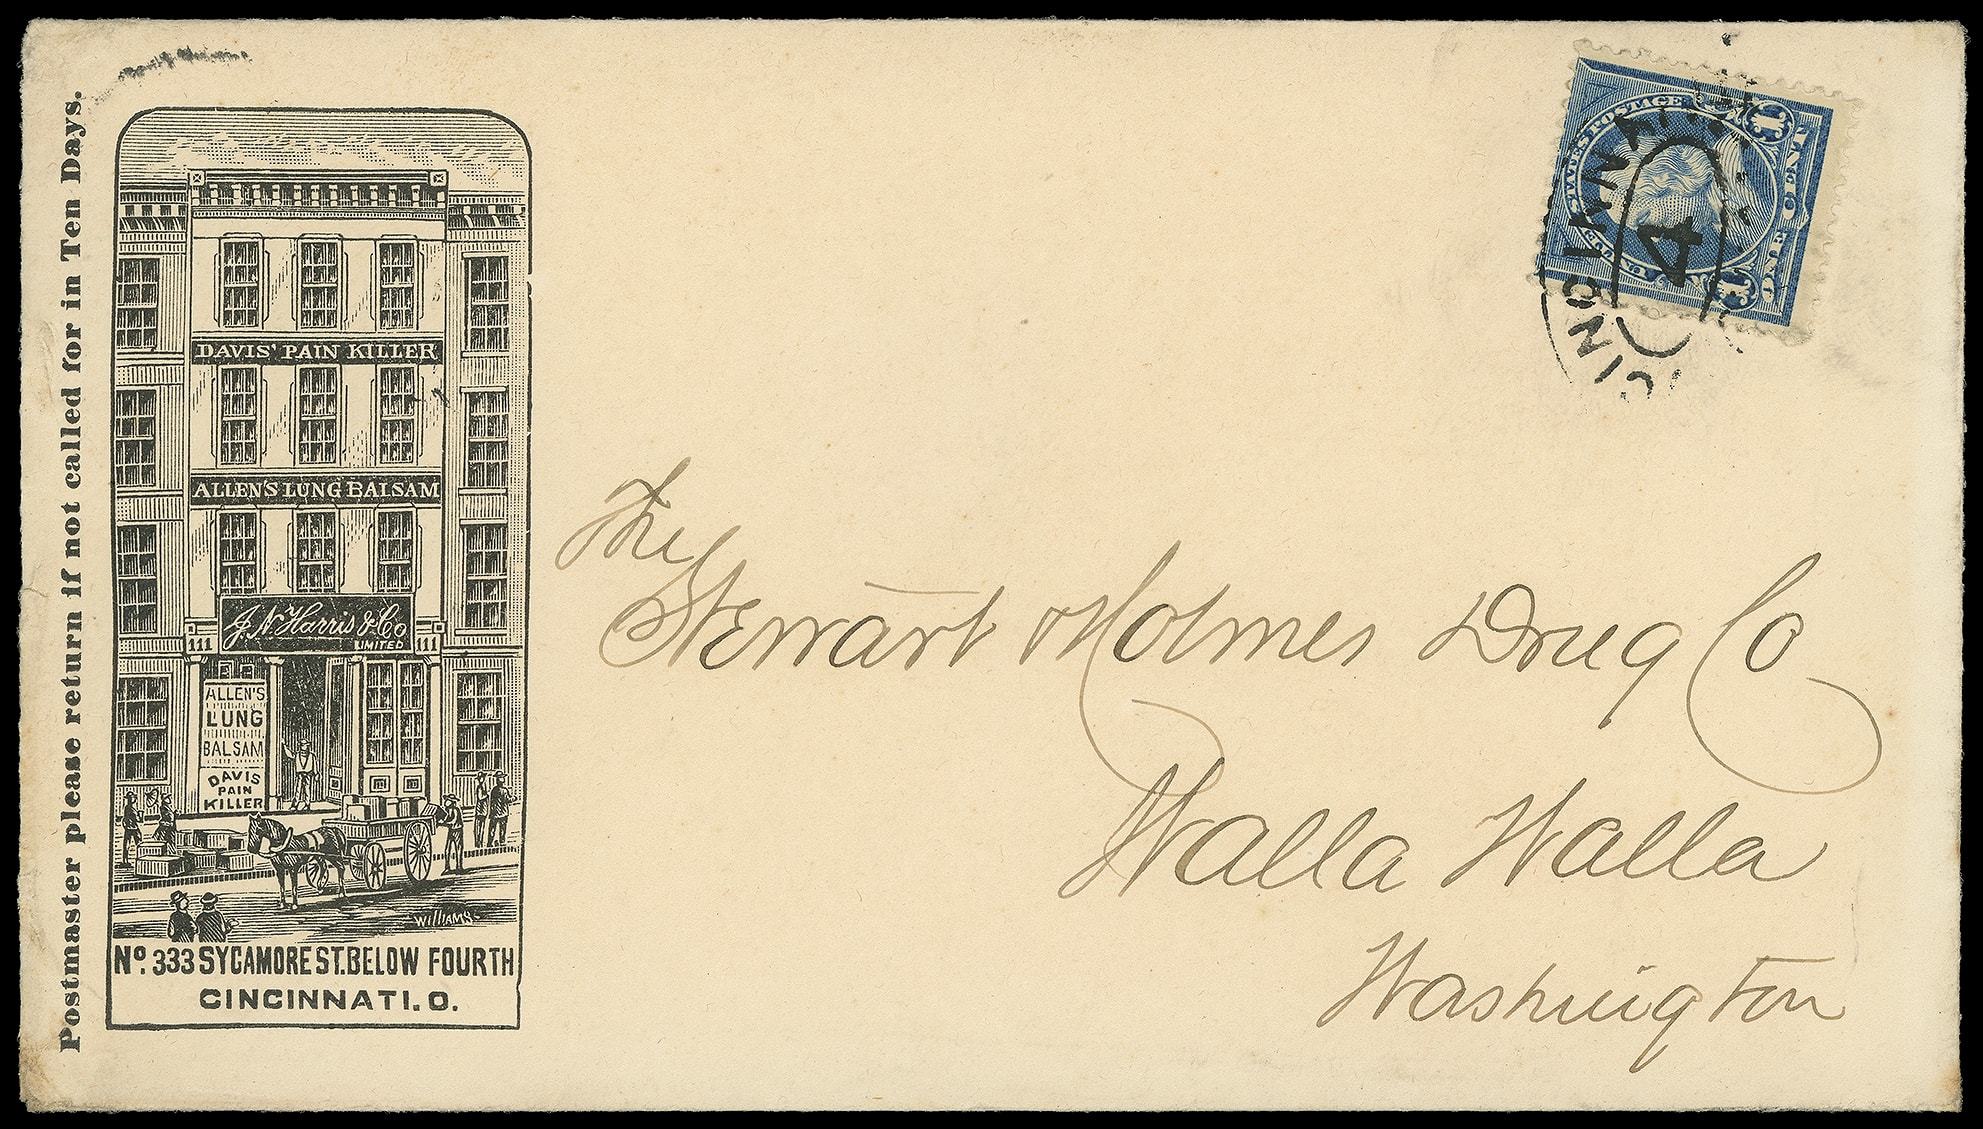 Postmaster please return if not called for in Ten Days.
DAVIS' PAIN KILLER
ALLEN'S LUNG BALSAM
J. N. Harris & Co
LIMITED
111 111
ALLEN'S
LUNG
BALSAM
DAVIS
PAIN
KILLER
Williams
No. 333 SYCAMORE ST. BELOW FOURTH
CINCINNATI. O.
UNITED STATES POSTAGE
1 1
ONE CENT
CINCINNATI
4
The
Stewart Holmes Drug Co
Walla Walla
Washington